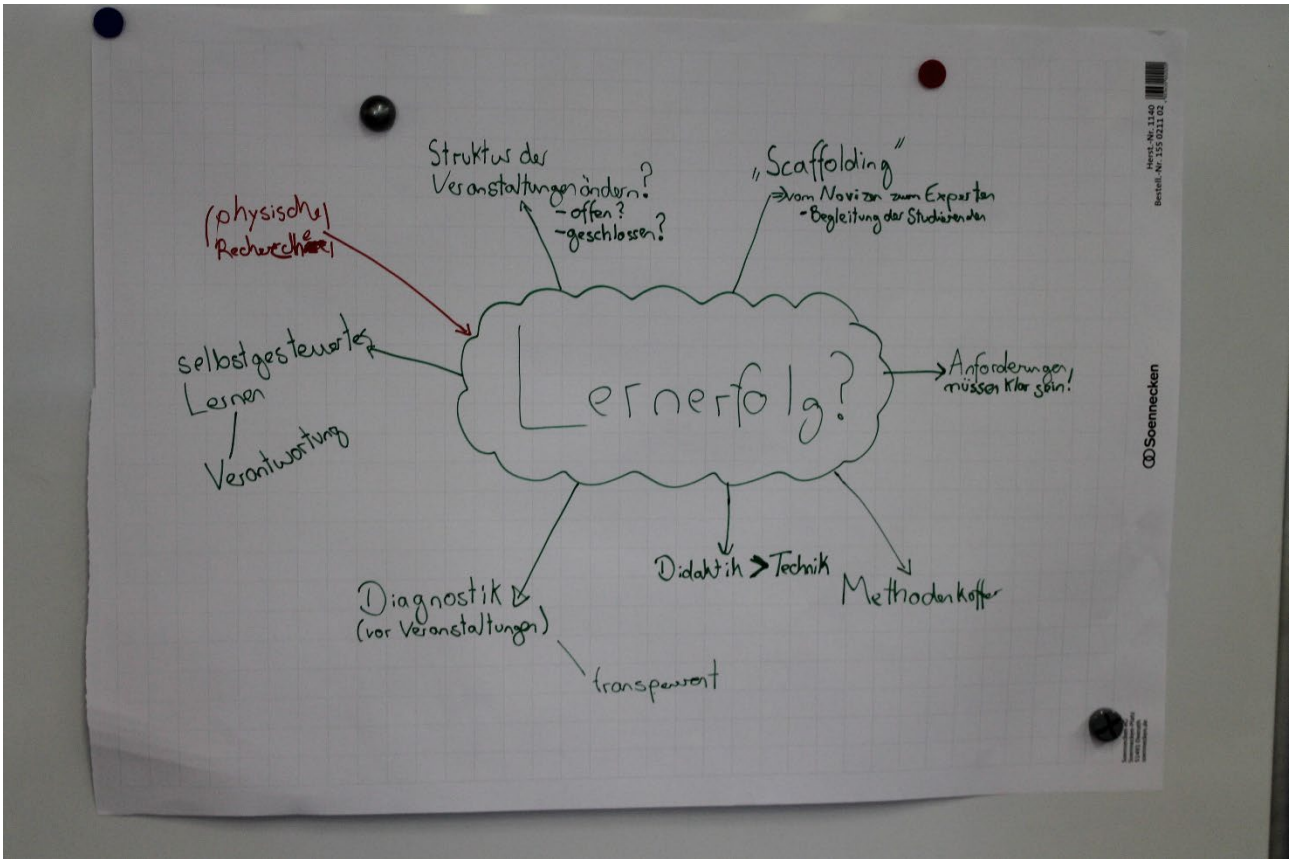 Struktur der
Veranstaltungen ändern?
- offen?
- geschlossen?
„Scaffolding"
⇒ vom Novizen zum Experten
- Begleitung der Studierenden
(physische)
Recherche
selbstgesteuertes
Lernen
Verantwortung
Lernerfolg?
Anforderungen
müssen klar sein!
Diagnostik
(vor Veranstaltungen)
transparent
Didaktik > Technik
Methodenkoffer
Herst.-Nr. 1140
Bestell.-Nr. 155 0211 02
Soennecken